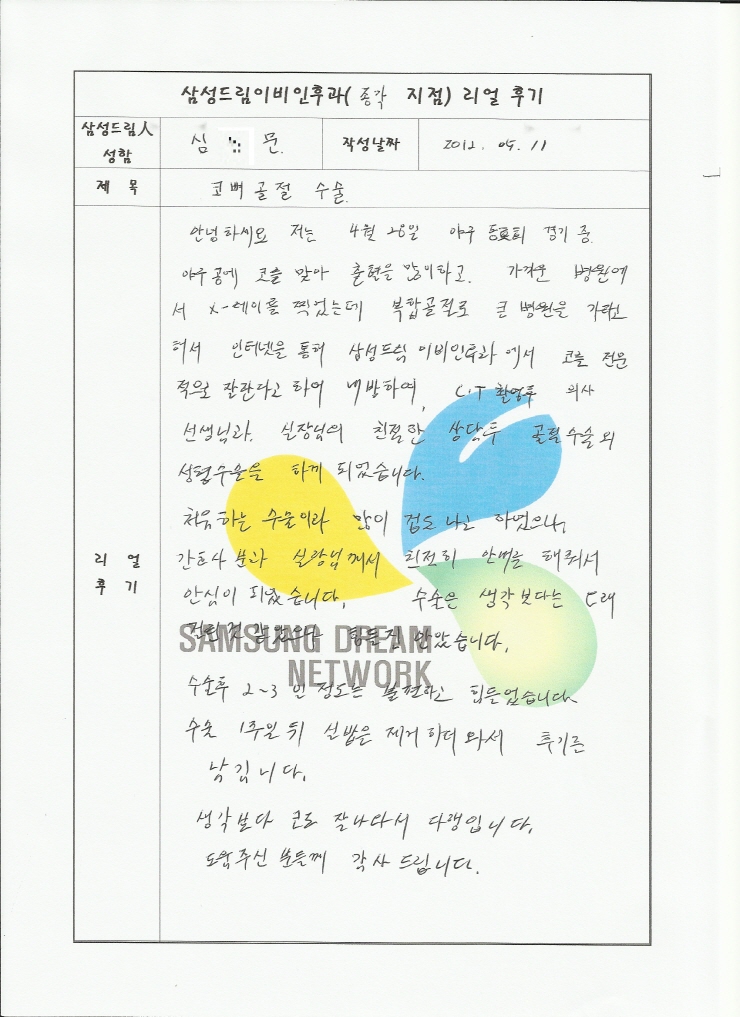 삼성드림이비인후과( 종각 지점) 리얼 후기
삼성드림人
성함
심 문.
작성날짜
2012. 05. 11
제 목
코뼈 골절 수술.
리 얼
후 기
안녕하세요 저는 4월 28일 야구 동호회 경기 중.
야구공에 코를 맞아 출혈을 많이하고. 가까운 병원에
서 X-레이를 찍었는데 복합골절로 큰 병원을 가라고
해서 인터넷을 통해 삼성드림 이비인후과 에서 코를 전문
적으로 잘한다고 하여 내방하여, C.T 촬영후 의사
선생님과. 실장님의 친절한 상담후 골절수술 외
성형수술을 하게 되었습니다.
처음하는 수술이라 많이 겁도 나고 하였으나,
간호사 분과 실장님께서 친절히 안내를 해줘서
안심이 되었습니다. 수술은 생각보다는 오래
걸린것 같았으나 힘들진 않았습니다.
SAMSUNG DREAM
NETWORK
수술후 2~3일 정도는 불편하고 힘들었습니다.
수술 1주일 뒤 실밥을 제거하러 와서 후기를
남깁니다.
생각보다 코도 잘나와서 다행입니다.
도움주신 분들께 감사 드립니다.